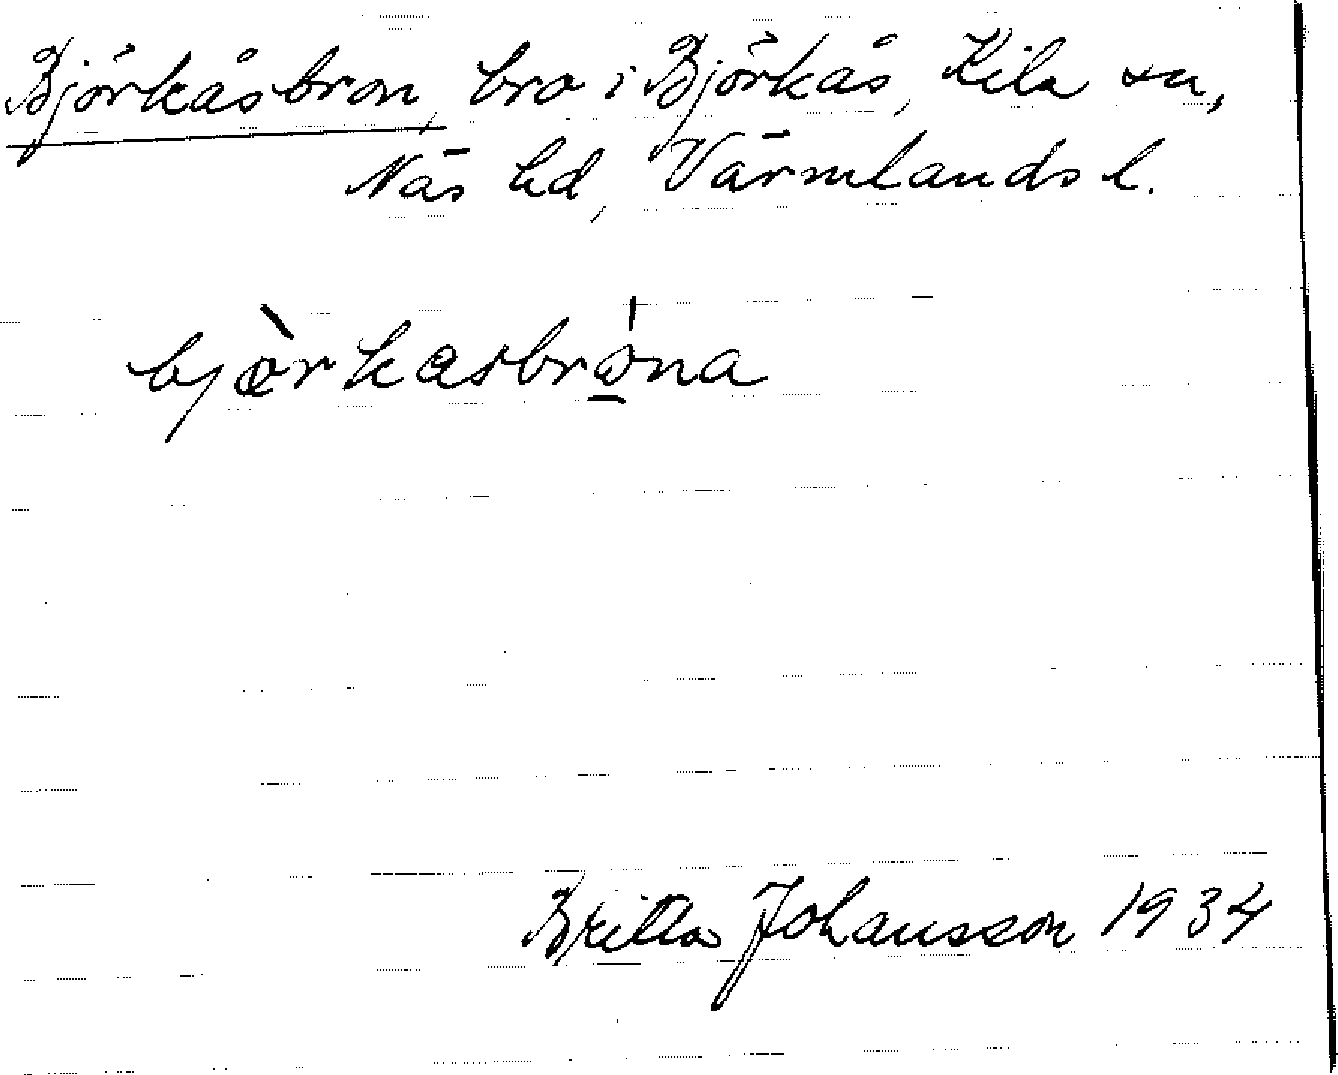 Björkåsbron, bro i Björkås, Kila sn,
Näs hd, Värmlands l.
bjœ̀rkasbrǿna
Britta Johansson 1934